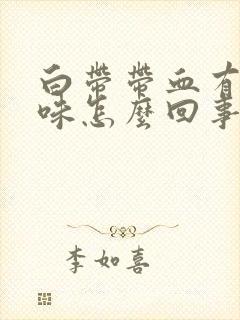 白带带血有
味怎麼回事
李如喜